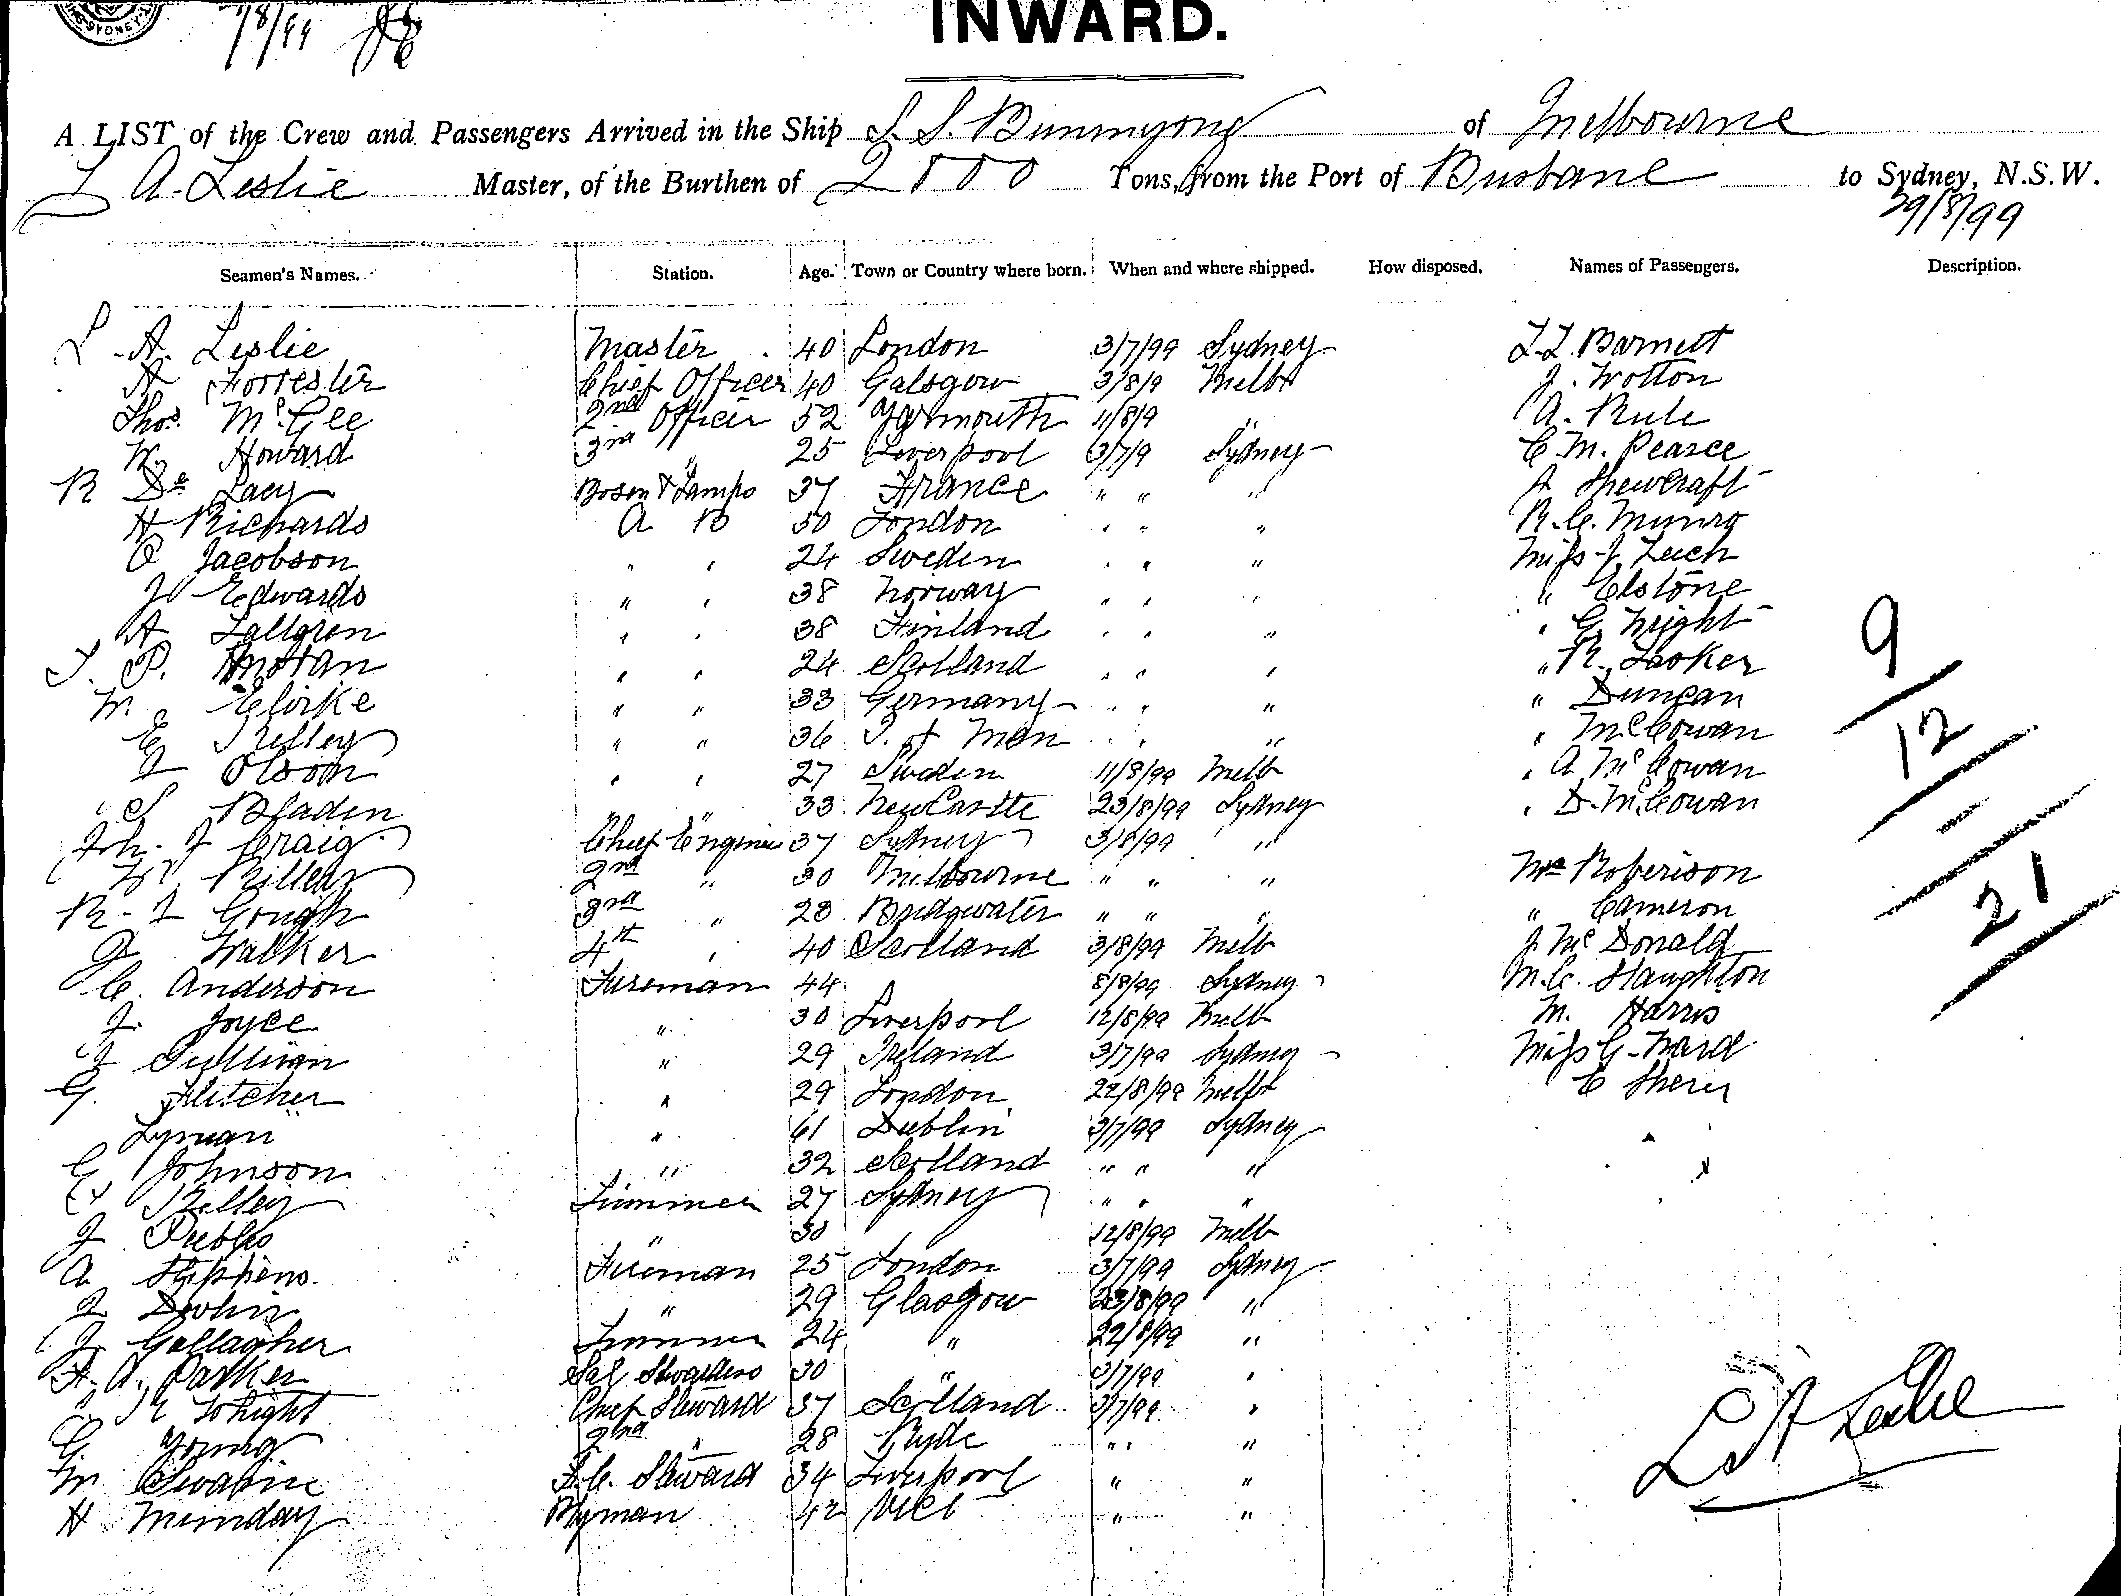 SYDNEY
7/8/99
INWARD.
A LIST of the Crew and Passengers Arrived in the Ship S. S. Bunnyong of Melbourne
L A. Leslie Master, of the Burthen of 2000 Tons, from the Port of Brisbane to Sydney, N.S.W.
29/8/99
Seamen's Names. Station. Age. Town or Country where born. When and where shipped. How disposed. Names of Passengers. Description.
L. A. Leslie Master 40 London 3/7/99 Sydney Barnett
A Forrester Chief Officer 40 Galsgow 3/8/9 Melb J. Wotton
Thos. McGee 2nd Officer 52 Yarmouth 11/8/9 " A. Rule
W. Howard 3rd " 25 Liverpool 3/7/9 Sydney C. M. Pearce
R De Lacy Bosen & Lamps 37 France " " " Shewcraft
H Richards A B 50 London " " " R. C. Munro
O Jacobson " " 24 Sweden " " " Miss J. Leech
J Edwards " " 38 Norway " " " " Elstone
A Lallgren " " 38 Finland " " " " G. Wright
J. P. Moran " " 24 Scotland " " " " R. Looker
9
M. Clorke " " 33 Germany " " " " Dungan
E Kelley " " 36 I. of Man " " " " McCowan
12
J Olson " " 27 Sweden 11/8/99 Melb " A McCowan
S Bladin " " 33 NewCastle 23/8/99 Sydney " D. McCowan
Jh. J Craig Chief Engineer 37 Sydney 3/8/99 "
W Killey 2nd " 30 Melbourne " " " Mrs Roberison
R. J Gough 3rd " 28 Bridgwater " " " " Cameron
21
J Walker 4th " 40 Scotland 3/8/99 Melb J. McDonald
C. Anderson Fireman 44 8/8/99 Sydney M. C. Staughton
J. Joyce " 30 Liverpool 12/8/99 Melb M. Harris
J Sullivan " 29 Ireland 3/7/99 Sydney Miss G. Ward
G. Fletcher " 29 London 22/8/99 Melb C Shery
Lyman " 61 Dublin 3/7/99 Sydney
G Johnson " 32 Scotland " " "
Kelley Trimmer 27 Sydney " " "
J Peebles " 30 12/8/99 Melb
A Stephens. Fireman 25 London 3/7/99 Sydney
J Devlin " 29 Glasgow 23/8/99 "
J. Gallagher Trimmer 24 " 22/8/99 "
A. A. Parker Sal Stwardess 30 " 3/7/99 "
Wright Chief Steward 37 Scotland 3/7/99 "
G Young 2nd " 28 Ryde " " "
M Swaine F. C. Steward 34 Liverpool " "
H Munday 42 Vict " "
L A Leslie